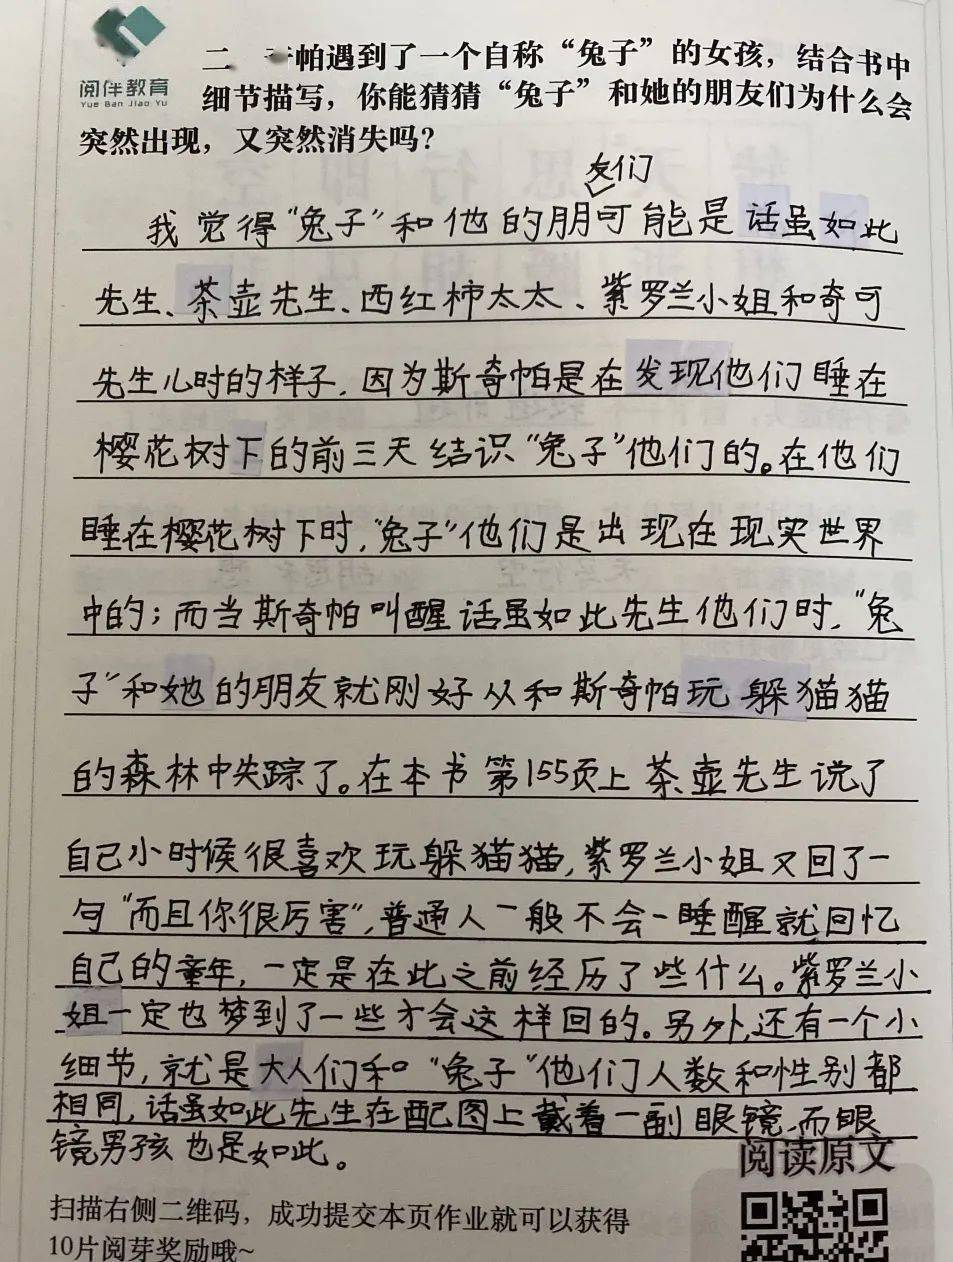 阅伴教育
Yue Ban Jiao Yu
二 帕遇到了一个自称“兔子”的女孩，结合书中
细节描写，你能猜猜“兔子”和她的朋友们为什么会
突然出现，又突然消失吗？
友们
我觉得“兔子”和他的朋可能是话虽如此
先生、茶壶先生、西红柿太太、紫罗兰小姐和奇可
先生儿时的样子，因为斯奇帕是在发现他们睡在
樱花树下的前三天结识“兔子”他们的。在他们
睡在樱花树下时，“兔子”他们是出现在现实世界
中的；而当斯奇帕叫醒话虽如此先生他们时，“兔
子”和她的朋友就刚好从和斯奇帕玩躲猫猫
的森林中失踪了。在本书第155页上茶壶先生说了
自己小时候很喜欢玩躲猫猫，紫罗兰小姐又回了一
句“而且你很厉害”，普通人一般不会一睡醒就回忆
自己的童年，一定是在此之前经历了些什么。紫罗兰小
姐一定也梦到了一些才会这样回的。另外，还有一个小
细节，就是大人们和“兔子”他们人数和性别都
相同，话虽如此先生在配图上戴着一副眼镜，而眼
镜男孩也是如此。
阅读原文
扫描右侧二维码，成功提交本页作业就可以获得
10片阅芽奖励哦~